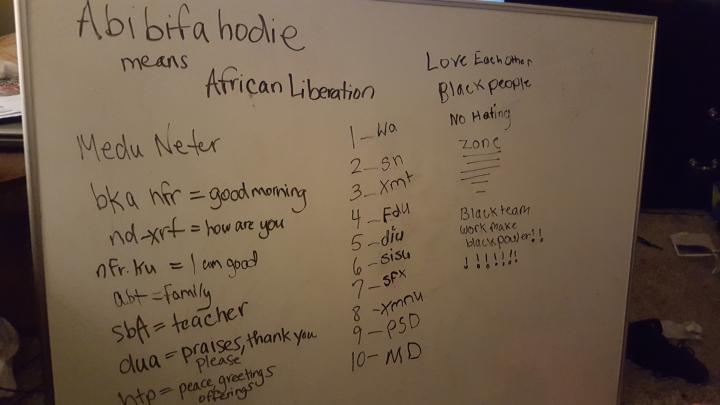 Abibifahodie
means
African Liberation
Medu Neter
bka nfr = good morning
nd-xrt = how are you
nfr.ku = I am good
abt = family
sbA = teacher
dua = praises, thank you
please
htp = peace, greetings
offerings
1 - Wa
2 - sn
3 - Xmt
4 - Fdu
5 - diu
6 - sisu
7 - sfx
8 - xmnu
9 - PSD
10 - MD
Love Each other
Black people
No Hating
Zone
Black team
work make
black power!!
!!!!!!!